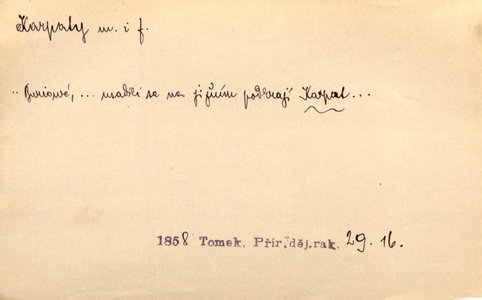 Karpaty m. i f.
„Buriové, ... usadili se na jižním podkrají Karpat...
1858 Tomek. Přír.děj.rak. 29. 16.